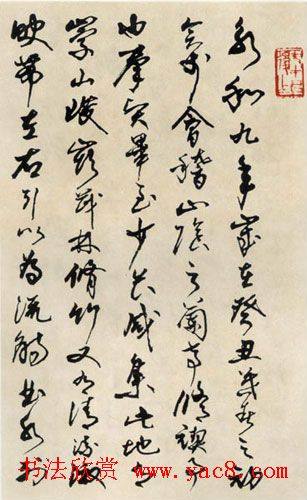 永和九年歲在癸丑暮春之初
會於會稽山陰之蘭亭脩禊事
也羣賢畢至少長咸集此地有
崇山峻嶺茂林脩竹又有清流激
映帶左右引以為流觴曲水列
书法欣赏 www.yac8.com